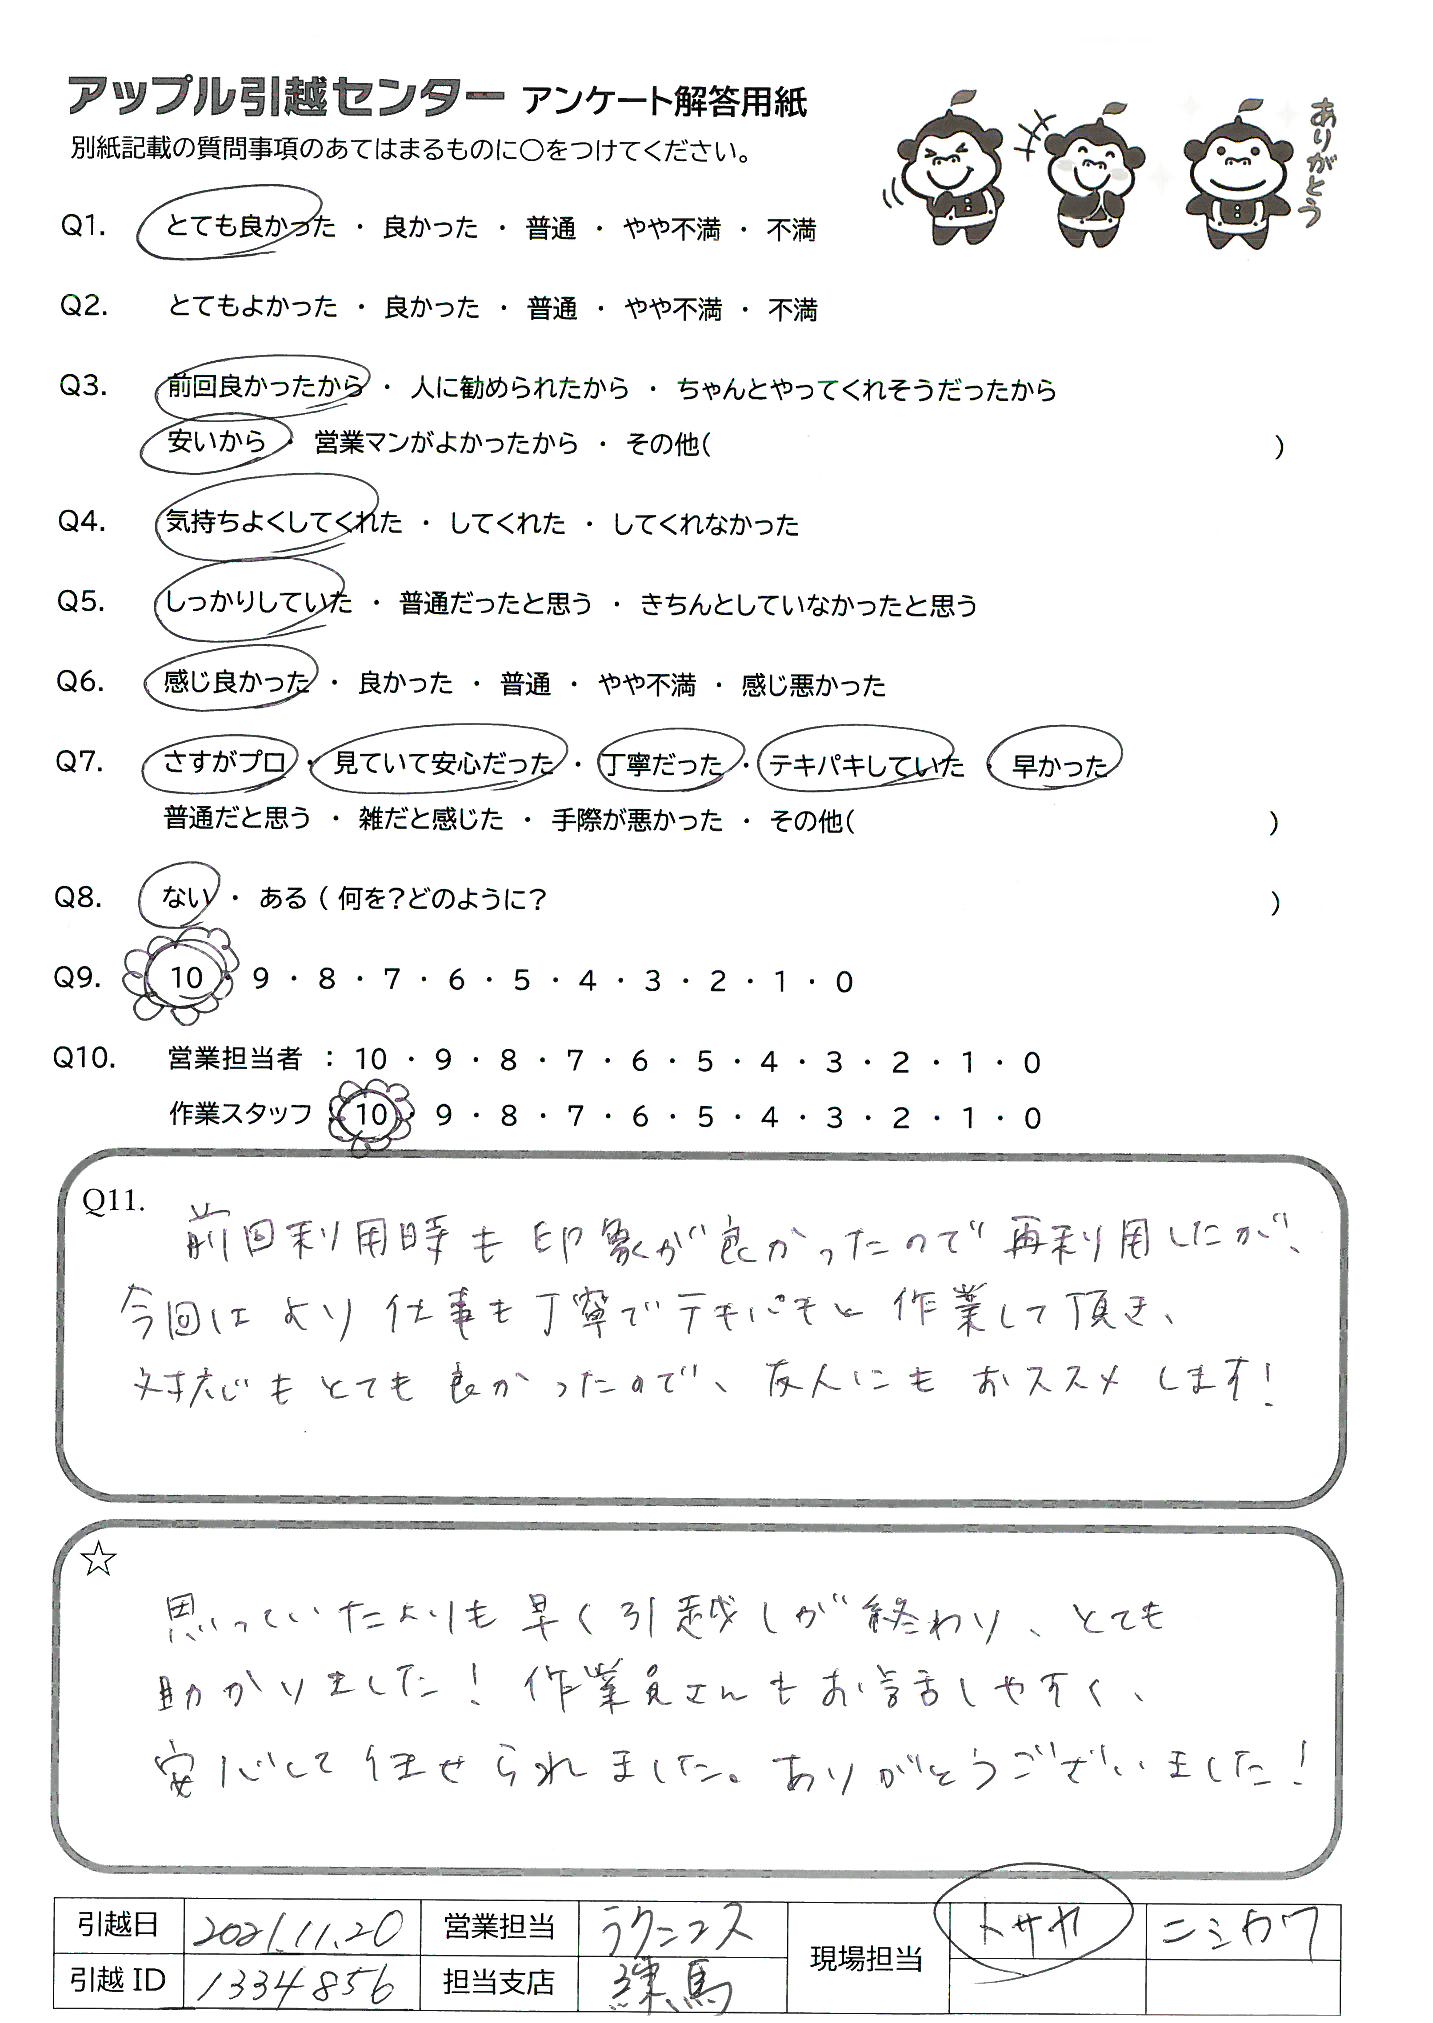 アップル引越センター アンケート解答用紙
別紙記載の質問事項のあてはまるものに〇をつけてください。
ありがとう
Q1. とても良かった ・ 良かった ・ 普通 ・ やや不満 ・ 不満
Q2. とてもよかった ・ 良かった ・ 普通 ・ やや不満 ・ 不満
Q3. 前回良かったから ・ 人に勧められたから ・ ちゃんとやってくれそうだったから
安いから ・ 営業マンがよかったから ・ その他( )
Q4. 気持ちよくしてくれた ・ してくれた ・ してくれなかった
Q5. しっかりしていた ・ 普通だったと思う ・ きちんとしていなかったと思う
Q6. 感じ良かった ・ 良かった ・ 普通 ・ やや不満 ・ 感じ悪かった
Q7. さすがプロ ・ 見ていて安心だった ・ 丁寧だった ・ テキパキしていた ・ 早かった
普通だと思う ・ 雑だと感じた ・ 手際が悪かった ・ その他( )
Q8. ない ・ ある ( 何を?どのように? )
Q9. 10 ・ 9 ・ 8 ・ 7 ・ 6 ・ 5 ・ 4 ・ 3 ・ 2 ・ 1 ・ 0
Q10. 営業担当者 : 10 ・ 9 ・ 8 ・ 7 ・ 6 ・ 5 ・ 4 ・ 3 ・ 2 ・ 1 ・ 0
作業スタッフ : 10 ・ 9 ・ 8 ・ 7 ・ 6 ・ 5 ・ 4 ・ 3 ・ 2 ・ 1 ・ 0
Q11. 前回利用時も印象が良かったので再利用したが、
今回はより仕事も丁寧でテキパキと作業して頂き、
対応もとても良かったので、友人にもおススメします!
☆
思っていたよりも早く引越しが終わり、とても
助かりました! 作業員さんもお話しやすく、
安心して任せられました。ありがとうございました!
引越日 2021.11.20 営業担当 ラクニコス 現場担当 トサカ ニシカワ
引越ID 1334856 担当支店 練馬